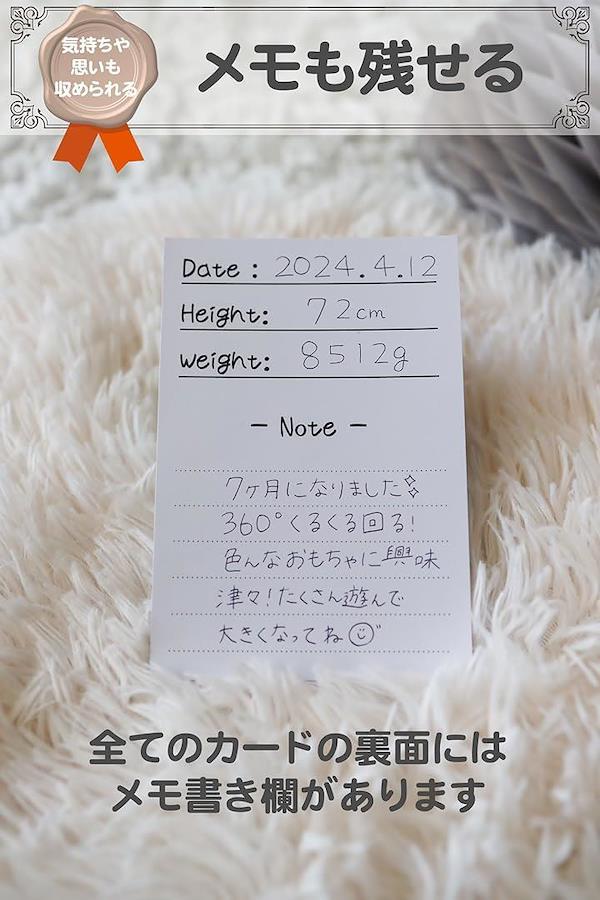 気持ちや
思いも
収められる
メモも残せる
Date : 2024.4.12
Height: 72cm
weight: 8512g
- Note -
7ヶ月になりました
360°くるくる回る!
色んなおもちゃに興味
津々!たくさん遊んで
大きくなってね
全てのカードの裏面には
メモ書き欄があります